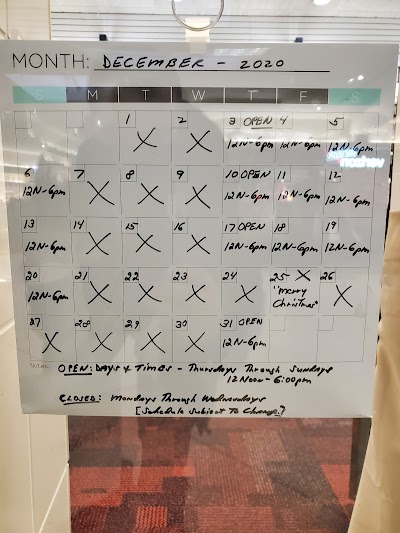 MONTH: DECEMBER - 2020
S M T W T F S
1 X 2 X 3 OPEN 12N-6pm 4 12N-6pm 5 12N-6pm
6 12N-6pm 7 X 8 X 9 X 10 OPEN 12N-6pm 11 12N-6pm 12 12N-6pm
13 12N-6pm 14 X 15 X 16 X 17 OPEN 12N-6pm 18 12N-6pm 19 12N-6pm
20 12N-6pm 21 X 22 X 23 X 24 X 25 X "Merry Christmas" 26 X
27 X 28 X 29 X 30 X 31 OPEN 12N-6pm
Notes: OPEN: DAYS & TIMES - Thursdays Through Sundays
12 Noon - 6:00pm
CLOSED: Mondays Through Wednesdays
[Schedule Subject To Change]